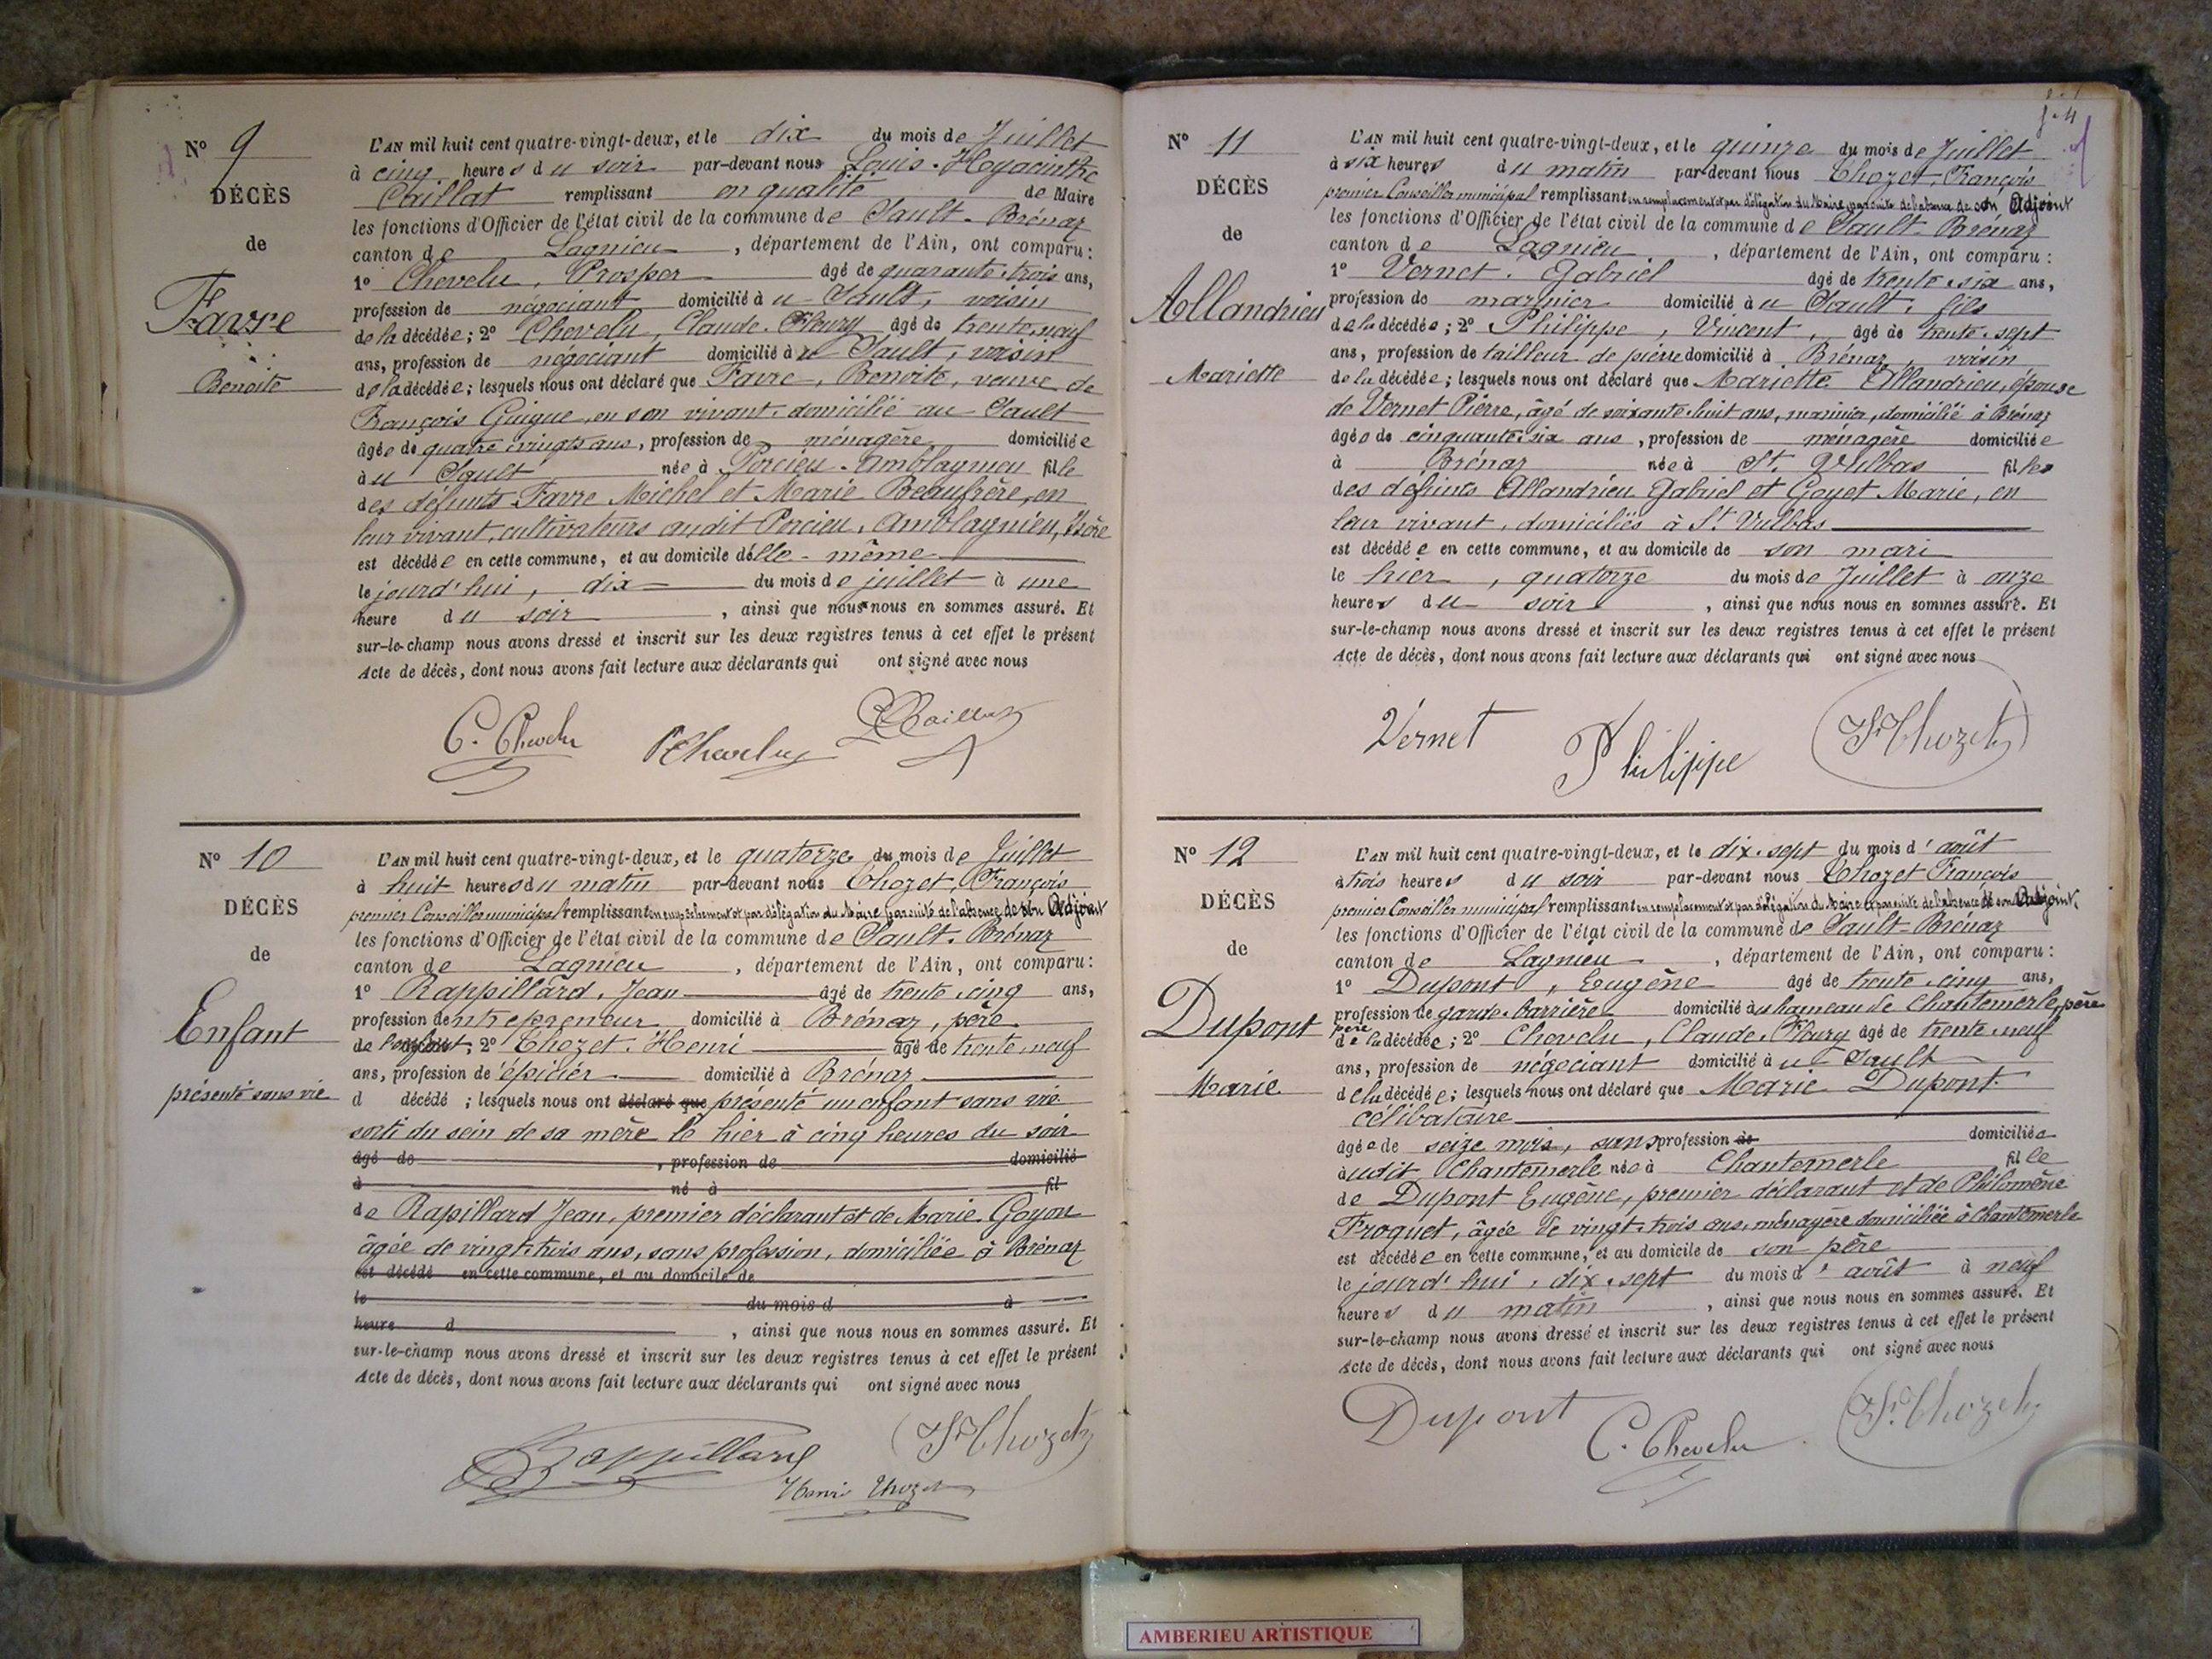 N° 9
DÉCÈS
de
Favre
Benoite
L'AN mil huit cent quatre-vingt-deux, et le dix du mois de Juillet
à cinq heures du soir par-devant nous Louis-Hyacinthe
Caillat remplissant en qualité de Maire
les fonctions d'Officier de l'état civil de la commune de Sault-Brénaz
canton de Lagnieu, département de l'Ain, ont comparu :
1° Chevelu, Prosper âgé de quarante-trois ans,
profession de négociant domicilié au Sault, voisin
de la décédée ; 2° Chevelu, Claude-Fleury âgé de trente-neuf
ans, profession de négociant domicilié au Sault, voisin
de la décédée ; lesquels nous ont déclaré que Favre, Benoite, veuve de
François Guigue, en son vivant, domicilié au Sault
âgée de quatre-vingts ans, profession de ménagère domiciliée
au Sault née à Porcieu-Amblagnieu fille
des défunts Favre Michel et Marie Beaufrère, en
leur vivant, cultivateurs audit Porcieu-Amblagnieu, Isère
est décédée en cette commune, et au domicile d'elle-même
le jourd'hui, dix du mois de juillet à une
heure du soir, ainsi que nous nous en sommes assuré. Et
sur-le-champ nous avons dressé et inscrit sur les deux registres tenus à cet effet le présent
Acte de décès, dont nous avons fait lecture aux déclarants qui ont signé avec nous
C. Chevelu PChevelu Caillat
N° 10
DÉCÈS
de
Enfant
présenté sans vie
L'AN mil huit cent quatre-vingt-deux, et le quatorze du mois de Juillet
à huit heures du matin par-devant nous Thozet, François
premier Conseiller municipal remplissant en empêchement et par délégation du Maire par suite de l'absence de son Adjoint
les fonctions d'Officier de l'état civil de la commune de Sault-Brénaz
canton de Lagnieu, département de l'Ain, ont comparu :
1° Rappillard, Jean âgé de trente-cinq ans,
profession d'entrepreneur domicilié à Brénaz, père
de l'enfant ; 2° Thozet, Henri âgé de trente-neuf
ans, profession de épicier domicilié à Brénaz
d décédé ; lesquels nous ont déclaré que présenté un enfant sans vie
sorti du sein de sa mère le hier à cinq heures du soir
âgé de , profession de domicilié
à né à fil
de Rapillard Jean, premier déclarant et de Marie Goyon
âgée de vingt-trois ans, sans profession, domiciliée à Brénaz
est décédé en cette commune, et au domicile de
le du mois d à
heure d , ainsi que nous nous en sommes assuré. Et
sur-le-champ nous avons dressé et inscrit sur les deux registres tenus à cet effet le présent
Acte de décès, dont nous avons fait lecture aux déclarants qui ont signé avec nous
Rappillard Fr Thozet
Henri Thozet
N° 11
DÉCÈS
de
Allandrieu
Mariette
L'AN mil huit cent quatre-vingt-deux, et le quinze du mois de Juillet
à six heures du matin par-devant nous Thozet, François
premier Conseiller municipal remplissant en remplacement et par délégation du Maire par suite de l'absence de son Adjoint
les fonctions d'Officier de l'état civil de la commune de Sault-Brénaz
canton de Lagnieu, département de l'Ain, ont comparu :
1° Vernet, Gabriel âgé de trente-six ans,
profession de marinier domicilié au Sault, fils
de la décédée ; 2° Philippe, Vincent, âgé de trente-sept
ans, profession de tailleur de pierre domicilié à Brénaz, voisin
de la décédée ; lesquels nous ont déclaré que Mariette Allandrieu, épouse
de Vernet Pierre, âgé de soixante-huit ans, marinier, domicilié à Brénaz
âgée de cinquante-six ans, profession de ménagère domiciliée
à Brénaz née à St. Vulbas fille
des défunts Allandrieu Gabriel et Goyet Marie, en
leur vivant, domiciliés à St Vulbas
est décédée en cette commune, et au domicile de son mari
le hier, quatorze du mois de Juillet à onze
heures du soir, ainsi que nous nous en sommes assuré. Et
sur-le-champ nous avons dressé et inscrit sur les deux registres tenus à cet effet le présent
Acte de décès, dont nous avons fait lecture aux déclarants qui ont signé avec nous
Vernet Philippe Fr Thozet
N° 12
DÉCÈS
de
Dupont
Marie
L'AN mil huit cent quatre-vingt-deux, et le dix-sept du mois d'août
à trois heures du soir par-devant nous Thozet François
premier Conseiller municipal remplissant en remplacement et par délégation du Maire et par suite de l'absence de son Adjoint
les fonctions d'Officier de l'état civil de la commune de Sault-Brénaz
canton de Lagnieu, département de l'Ain, ont comparu :
1° Dupont, Eugène âgé de trente-cinq ans,
profession de garde-barrière domicilié au hameau de Chantemerle, père
père
de la décédée ; 2° Chevelu, Claude-Fleury âgé de trente-neuf
ans, profession de négociant domicilié au Sault
de la décédée ; lesquels nous ont déclaré que Marie Dupont
célibataire
âgée de seize mois, sans profession de domiciliée
audit Chantemerle née à Chantemerle fille
de Dupont Eugène, premier déclarant et de Philomène
Froquet, âgée de vingt-trois ans, ménagère domiciliée à Chantemerle
est décédée en cette commune, et au domicile de son père
le jourd'hui, dix-sept du mois d'août à neuf
heures du matin, ainsi que nous nous en sommes assuré. Et
sur-le-champ nous avons dressé et inscrit sur les deux registres tenus à cet effet le présent
Acte de décès, dont nous avons fait lecture aux déclarants qui ont signé avec nous
Dupont C. Chevelu Fr Thozet
AMBERIEU ARTISTIQUE